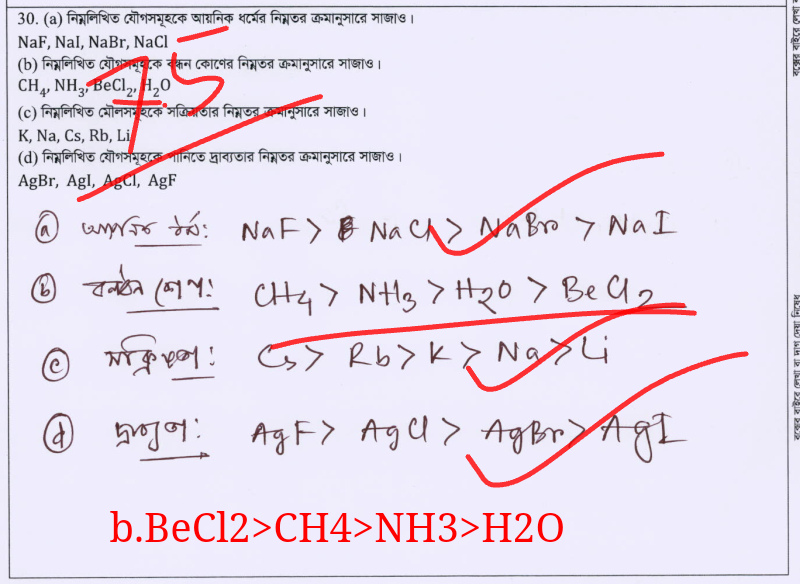 30. (a) নিম্নলিখিত যৌগসমূহকে আয়নিক ধর্মের নিম্নতর ক্রমানুসারে সাজাও।
NaF, NaI, NaBr, NaCl
(b) নিম্নলিখিত যৌগসমূহকে বন্ধন কোণের নিম্নতর ক্রমানুসারে সাজাও।
CH₄, NH₃, BeCl₂, H₂O
(c) নিম্নলিখিত মৌলসমূহকে সক্রিয়তার নিম্নতর ক্রমানুসারে সাজাও।
K, Na, Cs, Rb, Li
(d) নিম্নলিখিত যৌগসমূহকে পানিতে দ্রাব্যতার নিম্নতর ক্রমানুসারে সাজাও।
AgBr, AgI, AgCl, AgF
7.5
(a) আয়নিক ধর্ম: NaF > NaCl > NaBr > NaI
(b) বন্ধন কোণ: CH₄ > NH₃ > H₂O > BeCl₂
(c) সক্রিয়তা: Cs > Rb > K > Na > Li
(d) দ্রাব্যতা: AgF > AgCl > AgBr > AgI
b.BeCl2>CH4>NH3>H2O